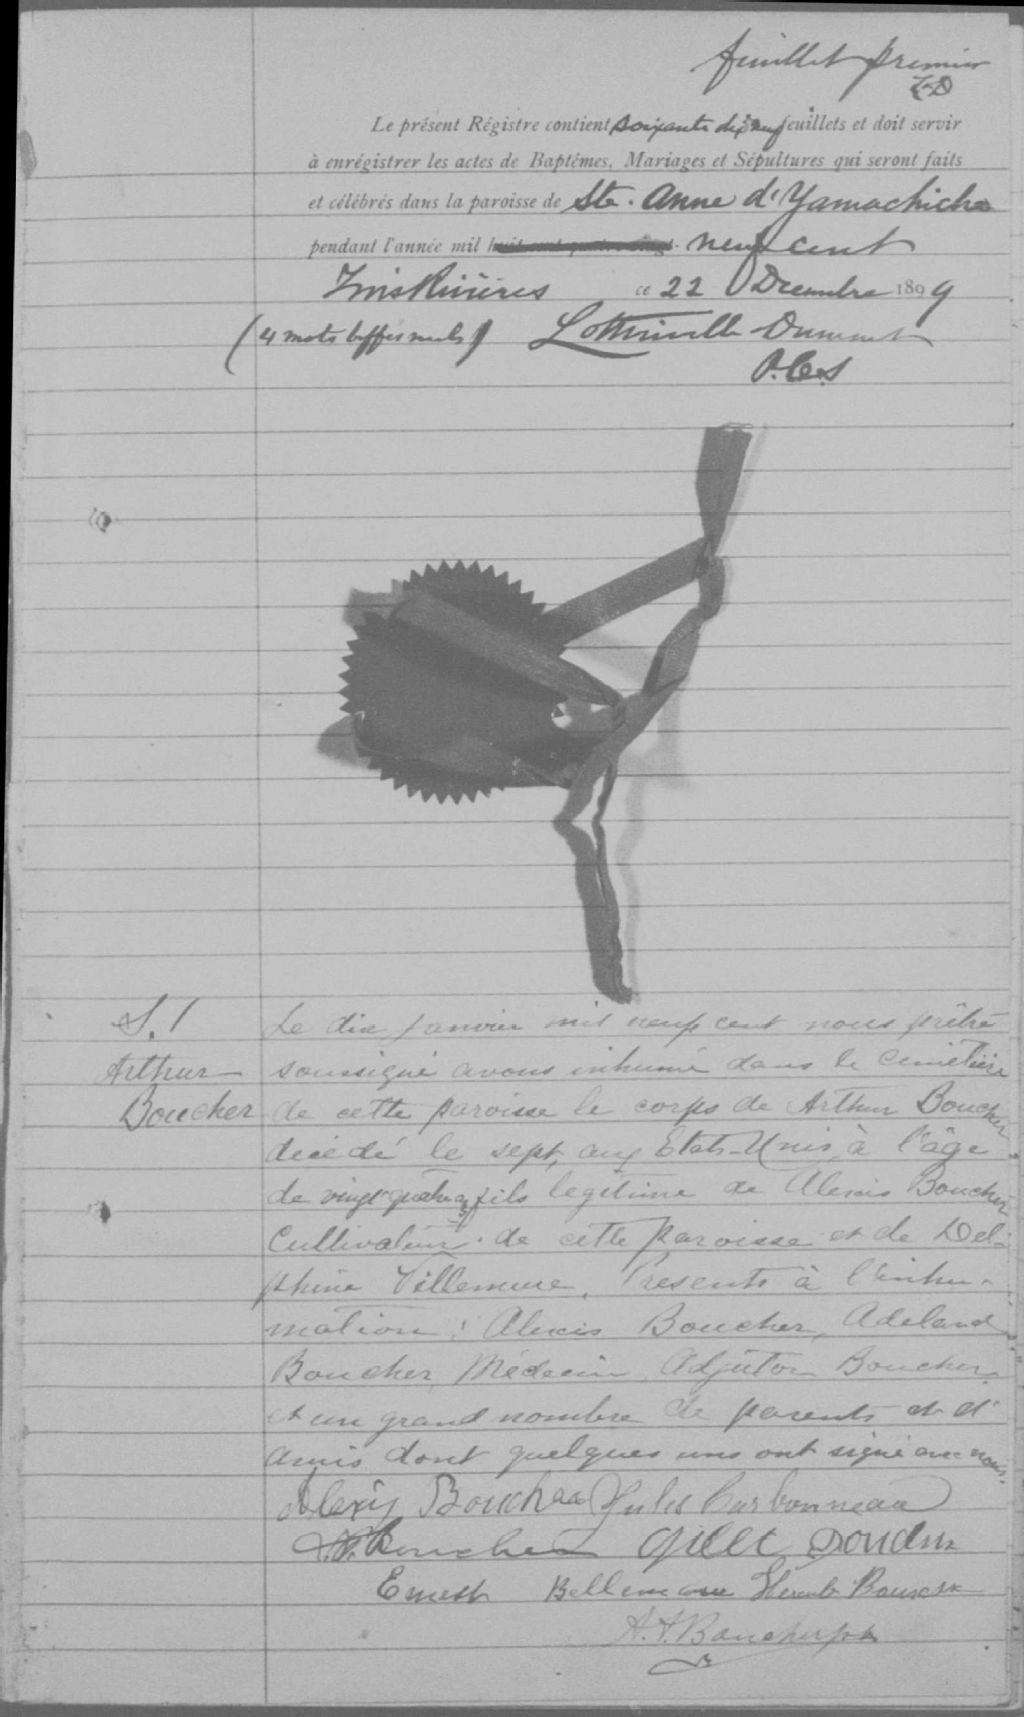 feuillet premier
L-D
Le présent Régistre contient soixante dix neuf feuillets et doit servir
à enrégistrer les actes de Baptêmes, Mariages et Sépultures qui seront faits
et célébrés dans la paroisse de Ste. Anne d'Yamachiche
pendant l'année mil huit cent quatre-vingt- neuf cent
Trois Rivières ce 22 Decembre 1899
(4 mots biffés nuls) Lottinville Dumont
P.C.S
S. 1
Arthur
Boucher
Le dix janvier mil neuf cent nous prêtre
soussigné avons inhumé dans le cimetière
de cette paroisse le corps de Arthur Boucher
décédé le sept, aux Etats-Unis, à l'âge
de vingt quatre ans fils legitime de Alexis Boucher
Cultivateur de cette paroisse et de Del-
phine Villemure. Presents à l'inhu-
mation : Alexis Boucher, Adeland
Boucher, Médecin, Adjutor Boucher,
et un grand nombre de parents et d'
amis dont quelques uns ont signé avec nous.
Alexis Boucher Jules Carbonneau
Boucher
Ernest Bellemare
A. A. Boucher ptre